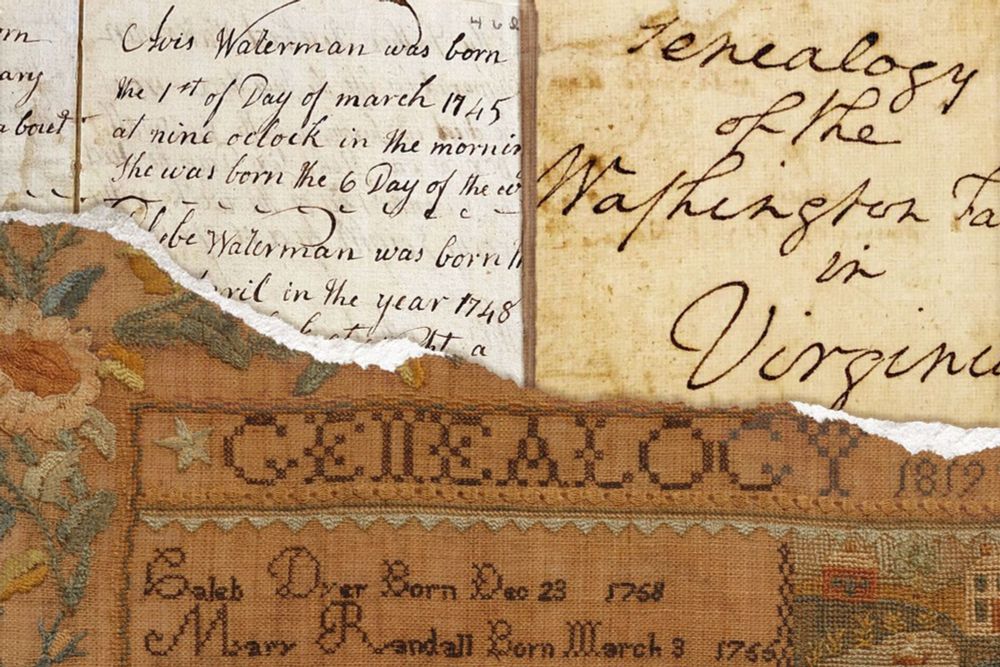 ary
about
Avis Waterman was born
the 1st of Day of march 1745
at nine oclock in the mornin
She was born the 6 Day of the
Phebe Waterman was born
ril in the year 1748
a
Genealogy
of the
Waſhington Fa
in
Virginia
GENEALOGY 1819
Caleb Dyer Born Dec 23 1768
Mary Randall Born March 3 1766